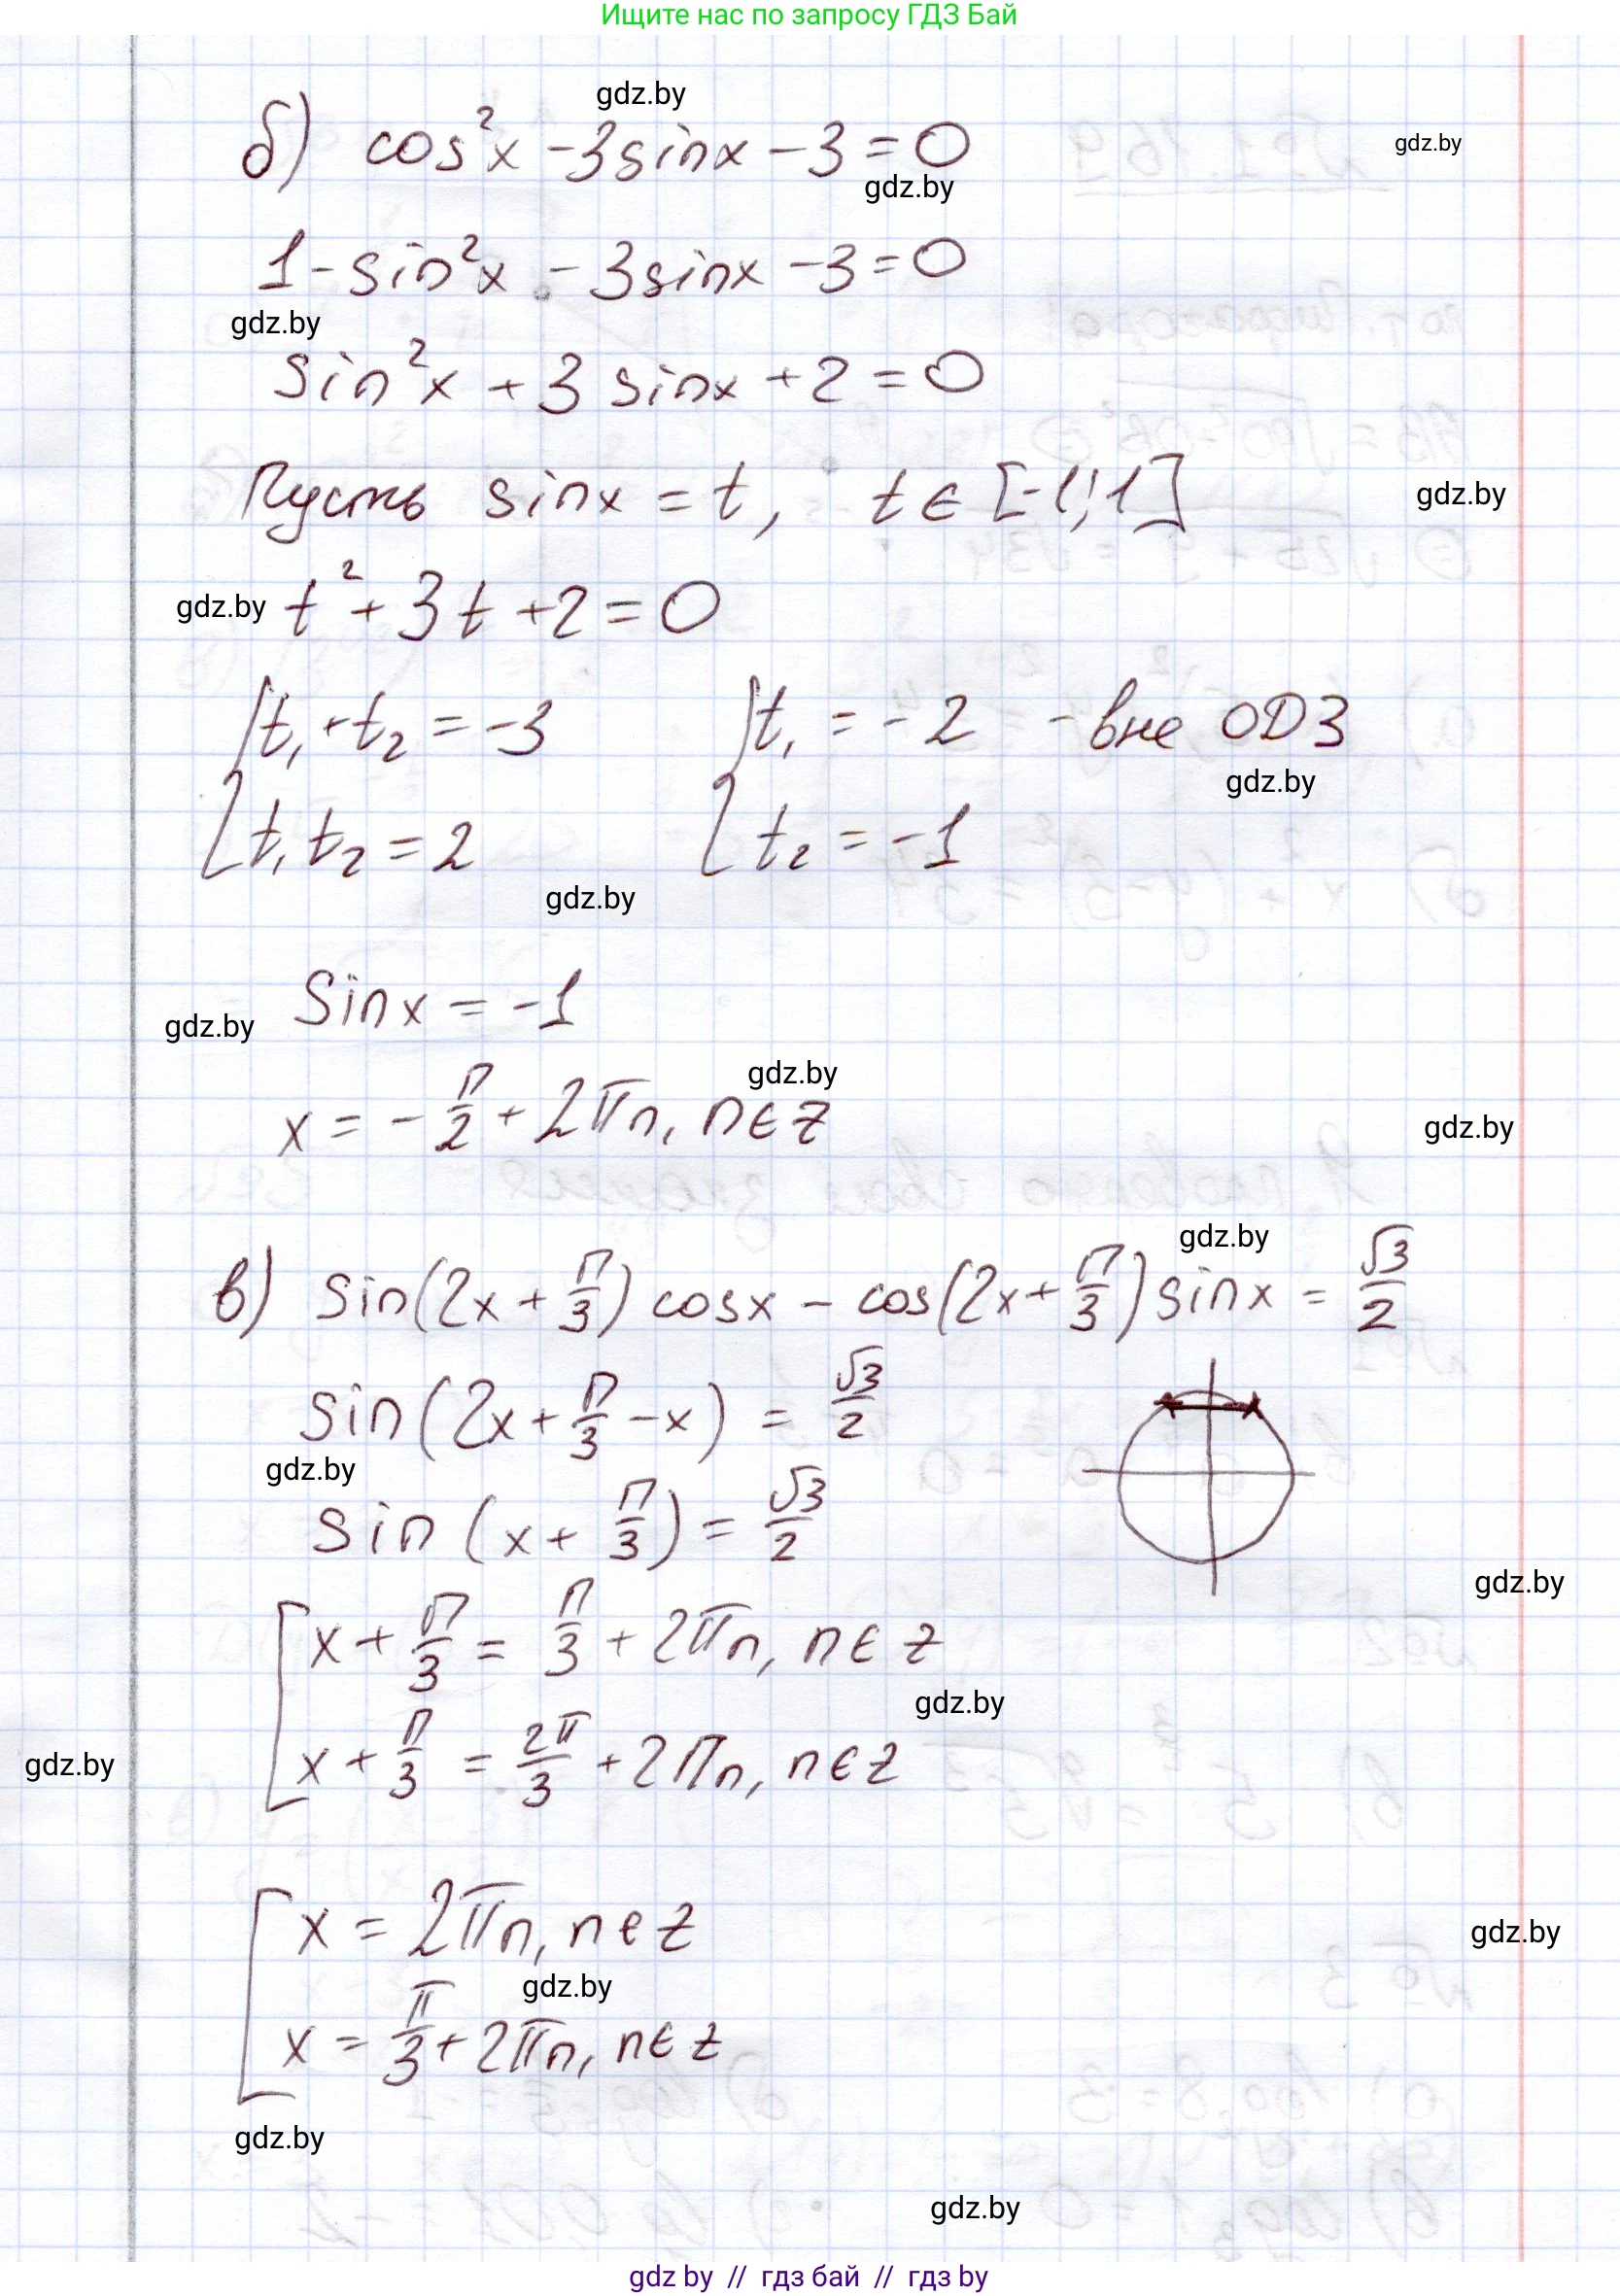 Ищите нас по запросу ГДЗ Бай
gdz.by
б) cos²x - 3sinx - 3 = 0
gdz.by
gdz.by
1 - sin²x - 3sinx - 3 = 0
gdz.by
sin²x + 3 sinx + 2 = 0
Пусть sinx = t, t ∈ [-1; 1]
gdz.by
gdz.by
t² + 3t + 2 = 0
t₁ + t₂ = -3 t₁ = -2 - вне ОДЗ
gdz.by
t₁ t₂ = 2 t₂ = -1
gdz.by
Sinx = -1
gdz.by
gdz.by
x = -π/2 + 2πn, n ∈ Z
gdz.by
gdz.by
в) sin(2x + π/3) cosx - cos(2x + π/3) sinx = √3/2
sin(2x + π/3 - x) = √3/2
gdz.by
sin (x + π/3) = √3/2
gdz.by
x + π/3 = π/3 + 2πn, n ∈ Z
gdz.by
gdz.by
x + π/3 = 2π/3 + 2πn, n ∈ Z
x = 2πn, n ∈ Z
gdz.by
gdz.by
x = π/3 + 2πn, n ∈ Z
gdz.by
gdz.by
gdz by // гдз бай // гдз by